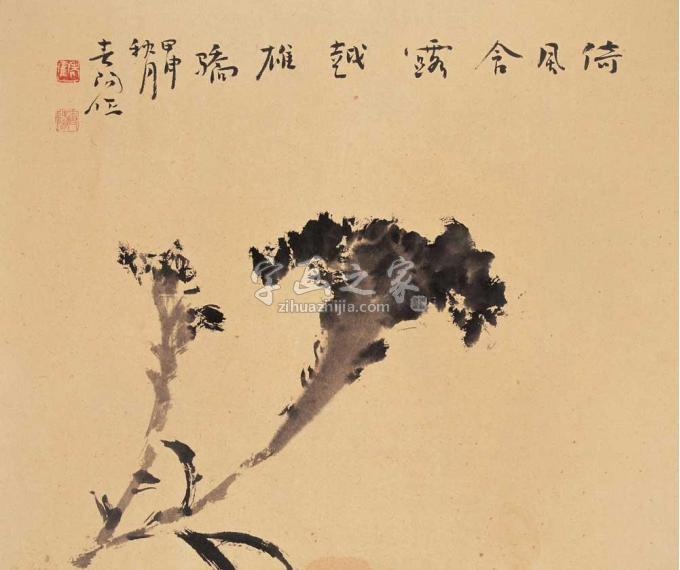 倚風含露越雄驕
甲申
秋月
字画之家
zihuazhijia.com